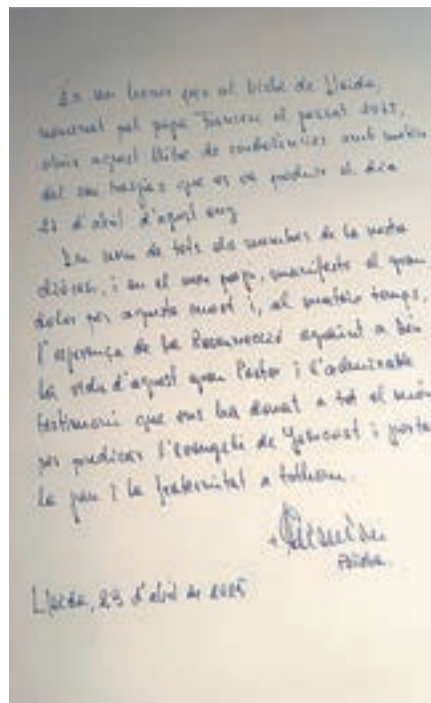 És un honor que el bisbe de Lleida,
nomenat pel papa Francesc el passat 2015,
obrir aquest llibre de condolències amb motiu
del seu traspàs que es va produir el dia
21 d'abril d'aquest any
En nom de tots els membres de la nostra
diòcesi, i en el meu propi, manifesto el gran
dolor per aquesta mort i, al mateix temps,
l'esperança de la Resurrecció agraint a Déu
la vida d'aquest gran Pastor i l'admirable
testimoni que ens ha donat a tot el món
per predicar l'evangeli de Jesucrist i portar
la pau i la fraternitat a tothom.
Lleida, 23 d'abril de 2025